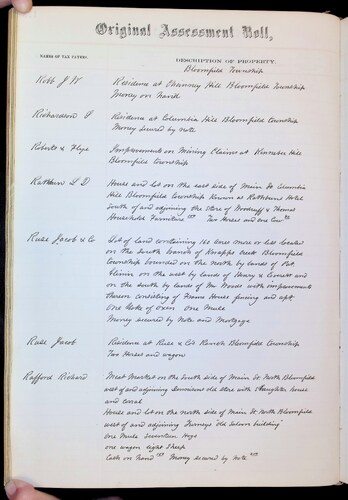 Original Assessment Roll,
NAMES OF TAX PAYERS.
DESCRIPTION OF PROPERTY.
Bloomfield Township
Robb J W
Residence at Channey Hill Bloomfield Township
Money on hand
Richardson
Residence at Columbia Hill Bloomfield township
Money secured by note
Roberts &
Improvements on Mining Claims at Hill
Bloomfield township
Rathbun S D
House and lot on the east side of Main St Columbia
Hill Bloomfield township Known as Rathbuns Hotel
South of and adjoining the store of & Thomas
Household Furniture Two Horses and one Cow
Ruse Jacob & Co
Lot of land containing 160 acres more or less located
on the South branch of Knapps creek Bloomfield
township bounded on the north by lands of Pat
on the west by lands of Henry & and
on the South by lands of Mr Woods with improvements
thereon consisting of Frame House fencing and
One Yoke of Oxen One Mule
Money secured by Note and Mortgage
Ruse Jacob
Residence at Ruse & Co's Ranch Bloomfield township
Two Horses and wagon
Rafford Richard
Meat Market on the South side of Main St North Bloomfield
west of and adjoining old store with slaughter house
and corral
House and lot on the north side of Main St North Bloomfield
west of and adjoining saloon building
One Mule Seventeen Hogs
one wagon eight Sheep
Cash on hand Money secured by note